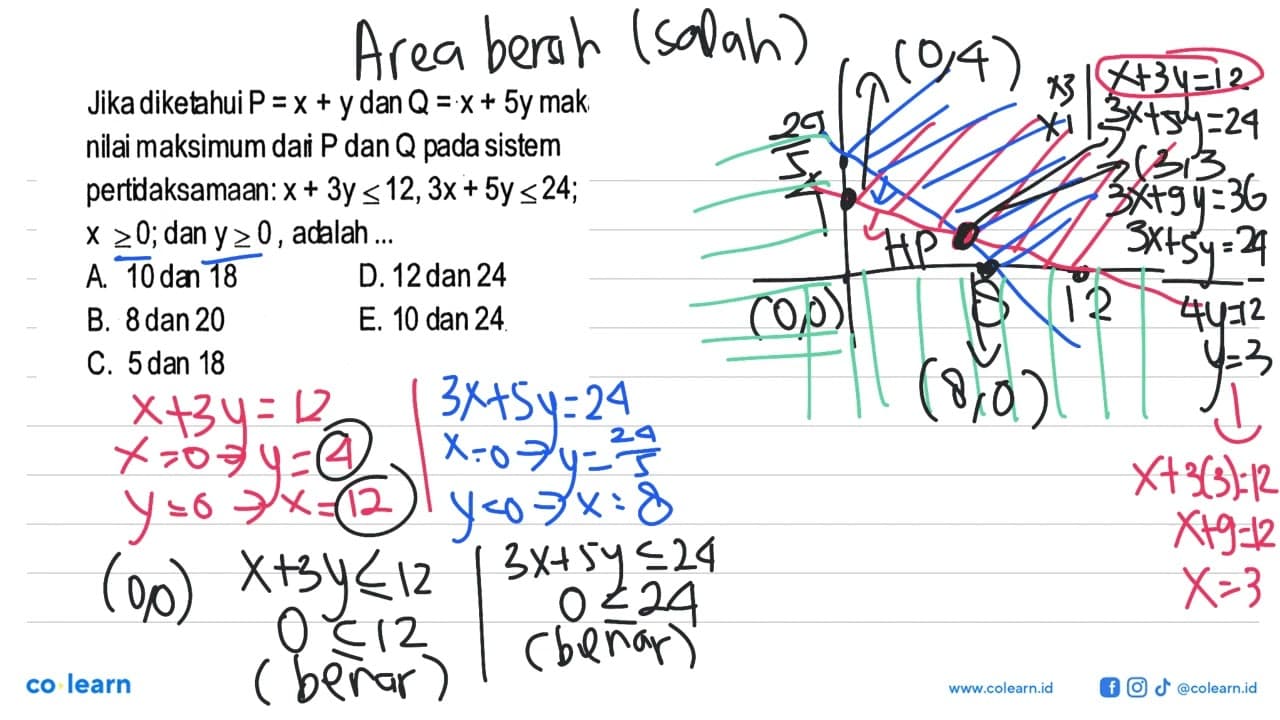 Area bersih (salah)
Jika diketahui P = x + y dan Q = x + 5y mak
nilai maksimum dari P dan Q pada sistem
pertidaksamaan: x + 3y ≤ 12, 3x + 5y ≤ 24;
x ≥ 0; dan y ≥ 0, adalah ...
A. 10 dan 18
D. 12 dan 24
B. 8 dan 20
E. 10 dan 24
C. 5 dan 18
x+3y=12
x=0→y=4
y=0→x=12
3x+5y=24
x=0→y=24/5
y=0→x=8
(0,0)
x+3y≤12
0≤12
(benar)
3x+5y≤24
0≤24
(benar)
(0,4)
24/5
4
HP
(0,0)
8
12
(8,0)
x3
x1
x+3y=12
3x+5y=24
(3,3
3x+9y=36
3x+5y=24
4y=12
y=3
x+3(3)=12
x+9=12
x=3
co learn
www.colearn.id
@colearn.id